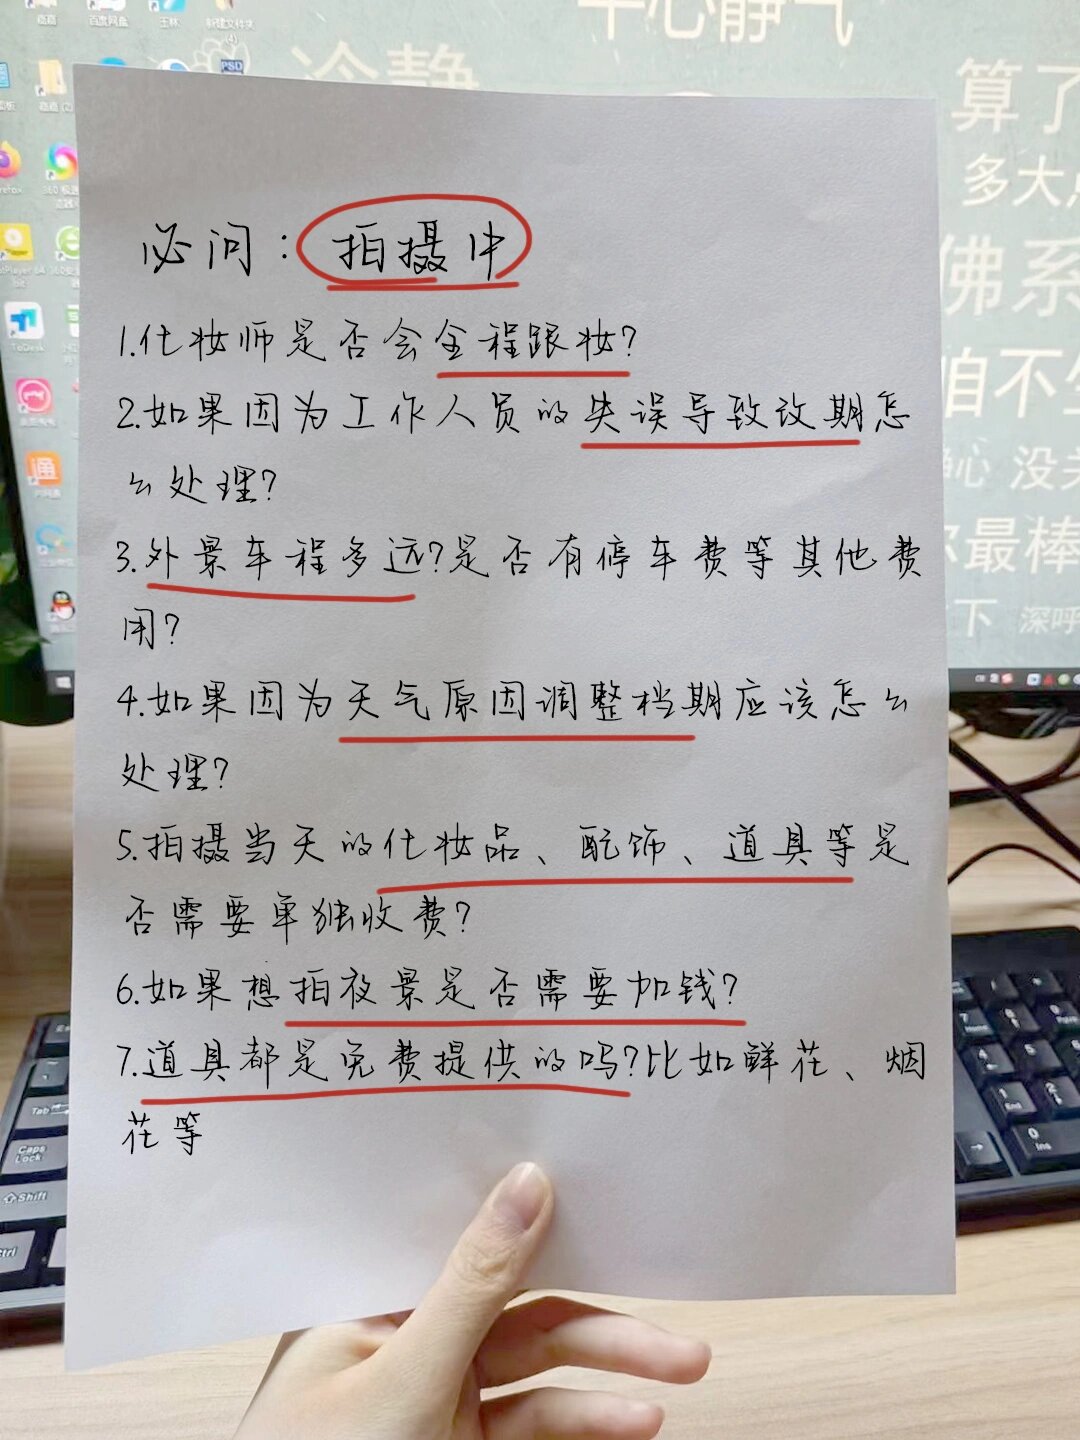 临嘉
百度网盘
王林
新建文件夹
(4)
平心静气
冷静
PSD
算了
多大点
佛系
咱不生
静心
没关
你最棒
下
深呼
ToDesk
必问：拍摄中
1.化妆师是否会全程跟妆?
2.如果因为工作人员的失误导致改期怎
么处理?
3.外景车程多远?是否有停车费等其他费
用?
4.如果因为天气原因调整档期应该怎么
处理?
5.拍摄当天的化妆品、配饰、道具等是
否需要单独收费?
6.如果想拍夜景是否需要加钱?
7.道具都是免费提供的吗?比如鲜花、烟
花等
Tab
Caps
Lock
Shift
Ctrl
7
Home
4
1
End
0
Ins